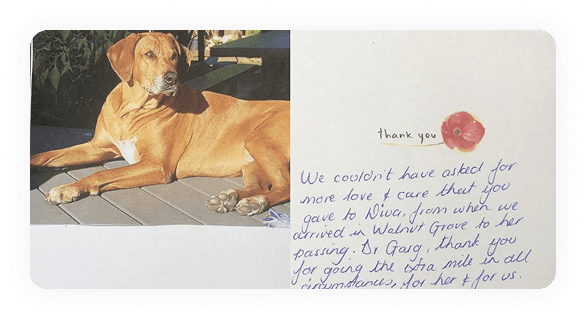 thank you
We couldn't have asked for
more love & care that you
gave to Niva, from when we
arrived in Walnut Grove to her
passing. Dr Garg, thank you
for going the extra mile in all
circumstances, for her & for us.